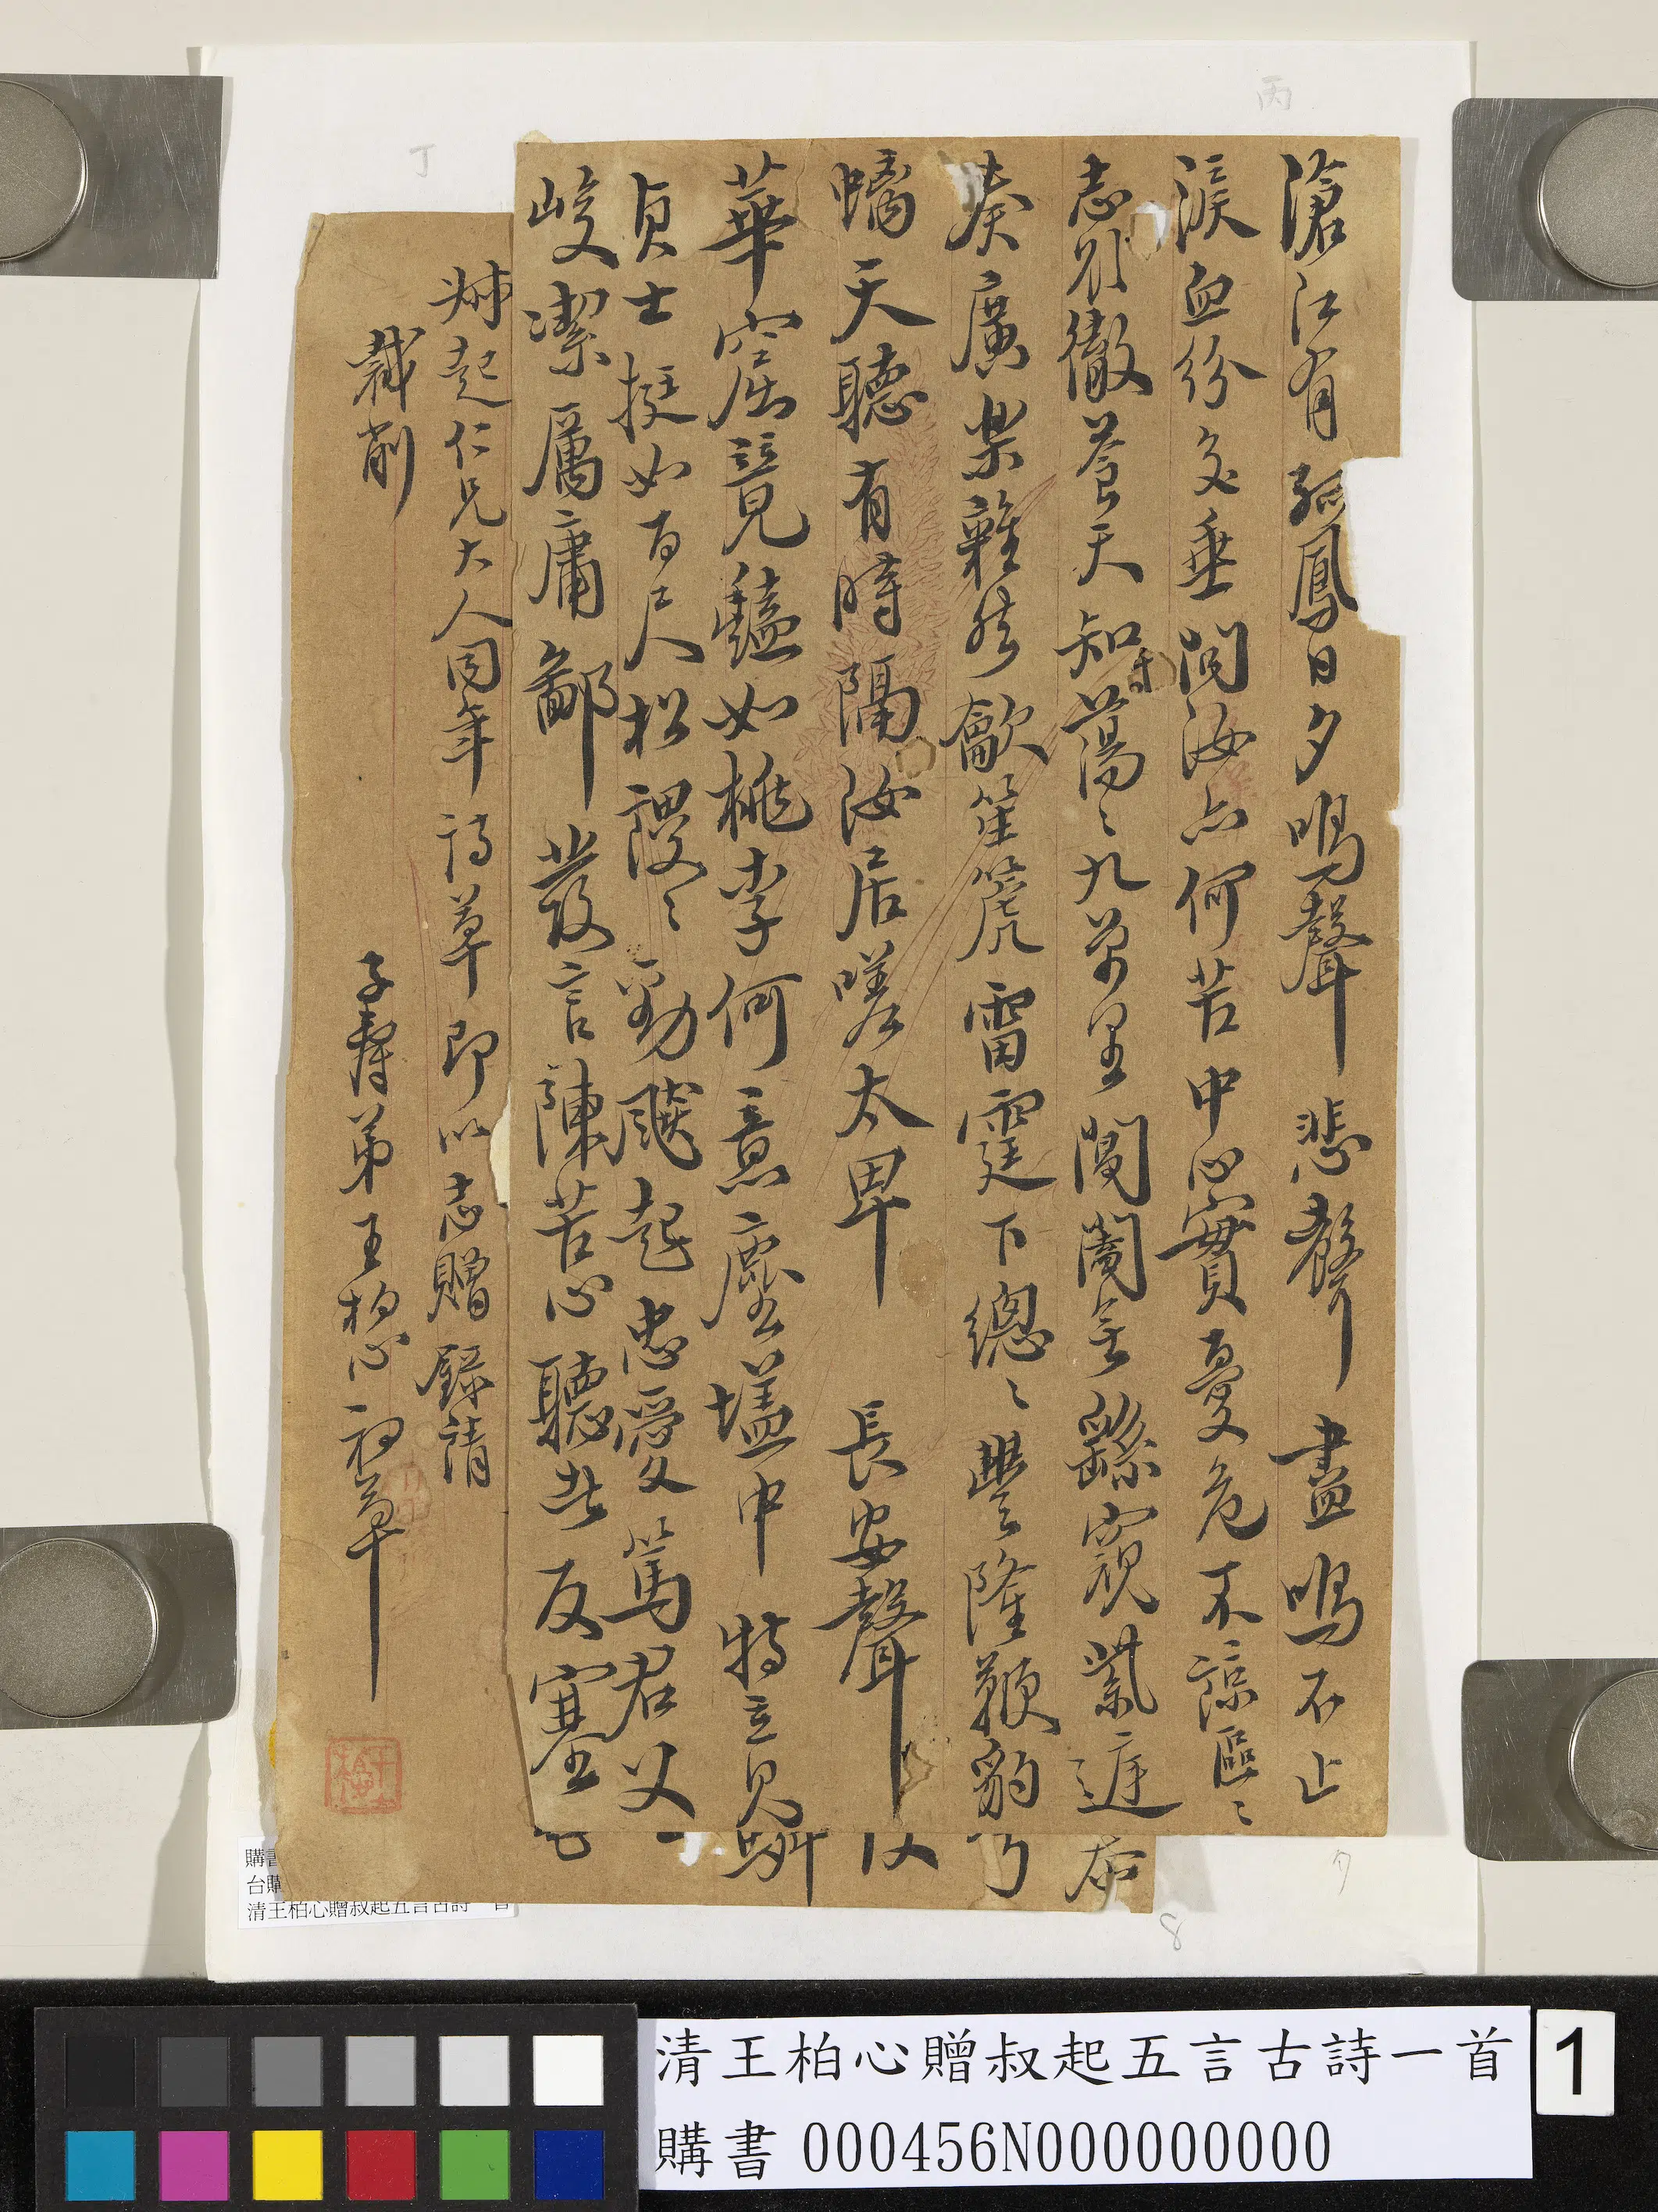 滄江有孤鳳日夕鳴聲悲聲盡鳴不止
淚血紛交垂問汝亦何苦中心實憂危不諒區〻
志則徹蒼天知蕩〻九萬里閶闔無繇窺紫遲
奏廣樂雜然龡笙箎雷霆下總〻豐隆鞭豹
螭天聽有時隔汝居嗟太卑 長安聲
華窟競見豔如桃李何意塵壒中特立見
貞士挺如百尺松謖〻勁颷起忠愛篤君父
峻潔厲庸鄙發言陳苦心聽者反塞
叔起仁兄大人同年詩草即以志贈錄請
裁削
子壽弟王柏心初草
丙
丁
8
清王柏心贈叔起五言古詩一首
清王柏心贈叔起五言古詩一首
購書 000456N000000000
1